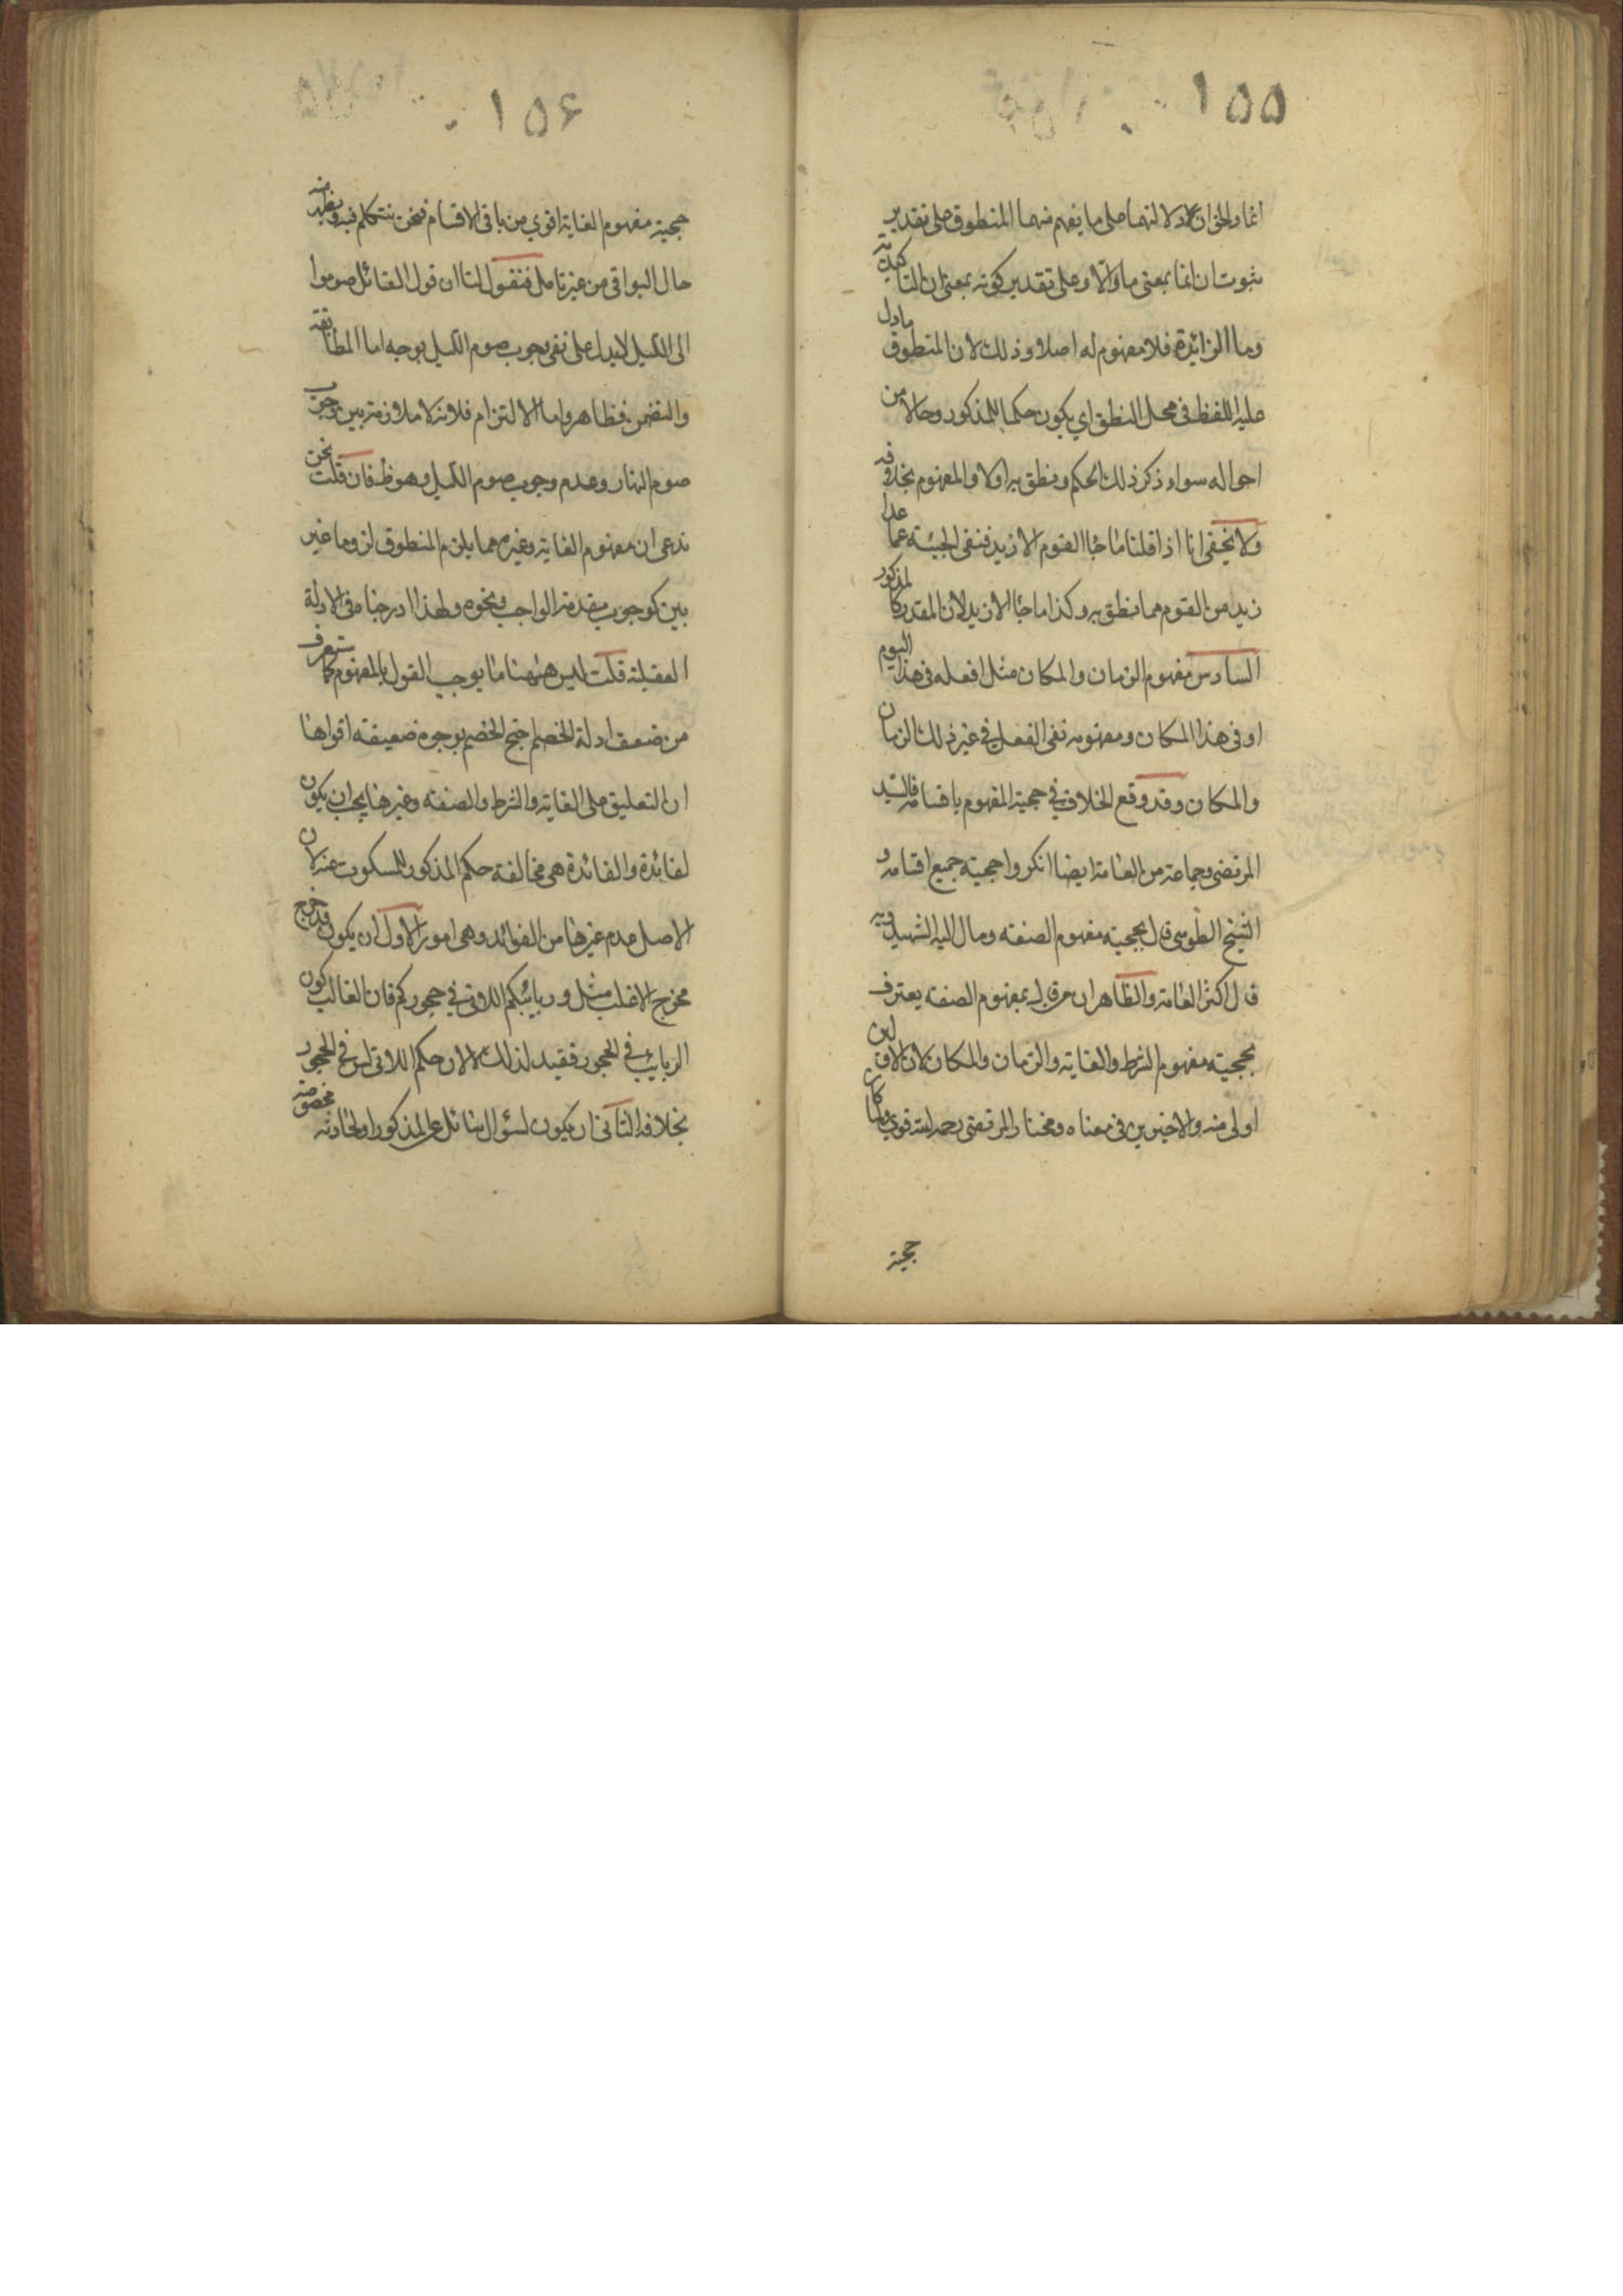 ١٥٥
انما والحق ان دلالتهما على ما يفهم منهما المنطوق على تقدير
ثبوت ان انما بمعنى ما والا وعلى تقدير كونه بمعنى ان التاكيدية
وما الزائدة فلا مفهوم له اصلا وذلك لان المنطوق ما دل
عليه اللفظ في محل النطق اي يكون حكما للمذكور وحالا من
احواله سواء ذكر ذلك الحكم ونطق به اولا والمفهوم بخلافه
ولا يخفى انا اذا قلنا ما جاء القوم الا زيد فنفى المجيئة عما عدا
زيد من القوم مما نطق به وكذا ما جاء الا زيد لان المقدر كالمذكور
السادس مفهوم الزمان والمكان مثل افعله في هذا اليوم
او في هذا المكان ومفهومه نفى الفعل في غير ذلك الزمان
والمكان وقد وقع الخلاف في حجية المفهوم باقسامه فالسيد
المرتضى وجماعة من العامة ايضا انكروا حجية جميع اقسامه و
الشيخ الطوسي قال بحجية مفهوم الصفة ومال اليه الشهيد وبه
قال اكثر العامة والظاهر ان من قال بمفهوم الصفة يعترف
بحجية مفهوم الشرط والغاية والزمان والمكان لان الاولين
اولى منه والاخيرين في معناه ومختار المرتضى رحمه الله قوي ولما كان
حجية
١٥۶
حجية مفهوم الغاية اقوي من باقي الاقسام فنحن نتكلم فيه ويظهر منه
حال البواقي من غير تامل فنقول لنا ان قول القائل صوموا
الى الليل لا يدل على نفى وجوب صوم الليل بوجه اما المطابقة
والتضمن فظاهر واما الالتزام فلانه لا ملازمة بين وجوب
صوم النهار وعدم وجوب صوم الليل وهو ظ فان قلت نحن
ندعى ان مفهوم الغاية وغيره مما يلزم المنطوق لزوما غير
بين كوجوب مقدمة الواجب ونحوه ولهذا ادرجناه في الادلة
العقلية قلت ليس ههنا ما يوجب القول بالمفهوم كما ستعرف
من ضعف ادلة الخصم احتج الخصم بوجوه ضعيفة اقواها
ان التعليق على الغاية والشرط والصفة وغيرها يجب ان يكون
لفائدة والفائدة هي مخالفة حكم المذكور للمسكوت عنه لان
الاصل عدم غيرها من الفوائد وهي امور الاول ان يكون قد خرج
مخرج الاغلب مثل وربائبكم اللاتي في حجوركم فان الغالب كون
الربائب في الحجور فقيد لذلك لا لان حكم اللاتي لسن في الحجور
بخلافه الثاني ان يكون لسؤال سائل عن المذكور او لحادثة مخصوصة